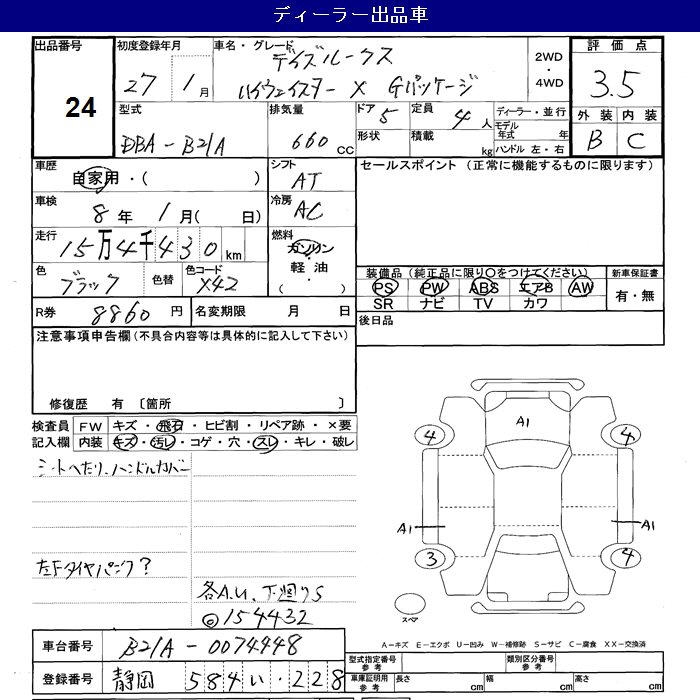 ディーラー出品車
出品番号 24
初度登録年月 27 1月
車名・グレード デイズルークス
ハイウェイスター X Gパッケージ
2WD ・ 4WD
評価点 3.5
外装 B 内装 C
型式 DBA-B21A
排気量 660 cc
ドア 5 定員 4人
形状 積載 kg
ディーラー・並行
モデル年式 年
ハンドル 左・右
車歴 自家用・( )
シフト AT
セールスポイント(正常に機能するものに限ります)
車検 8年 1月( 日)
冷房 AC
走行 15万4千430km
燃料 ガソリン・軽油・( )
色 ブラック 色替 色コード X42
装備品(純正品に限り○をつけてください) 新車保証書
PS PW ABS エアB AW 有・無
SR ナビ TV カワ
R券 8860円 名変期限 月 日
後日品
注意事項申告欄(不具合内容等は具体的に記入して下さい)
修復歴 有 〔箇所 〕
検査員 FW キズ・飛石・ヒビ割・リペア跡・×要
記入欄 内装 キズ・汚レ・コゲ・穴・スレ・キレ・破レ
シートへたり、ハンドルカバー
左Fタイヤパンク?
各A.U、下廻りS
◎154432
A1
4 4
A1 A1
3 4
スペア
A-キズ E-エクボ U-凹み W-補修跡 S-サビ C-腐食 XX-交換済
車台番号 B21A-0074448
登録番号 静岡 584 い ・228
型式指定番号 参考 類別区分番号 参考
車庫証明用 参考 長さ cm 幅 cm 高さ cm